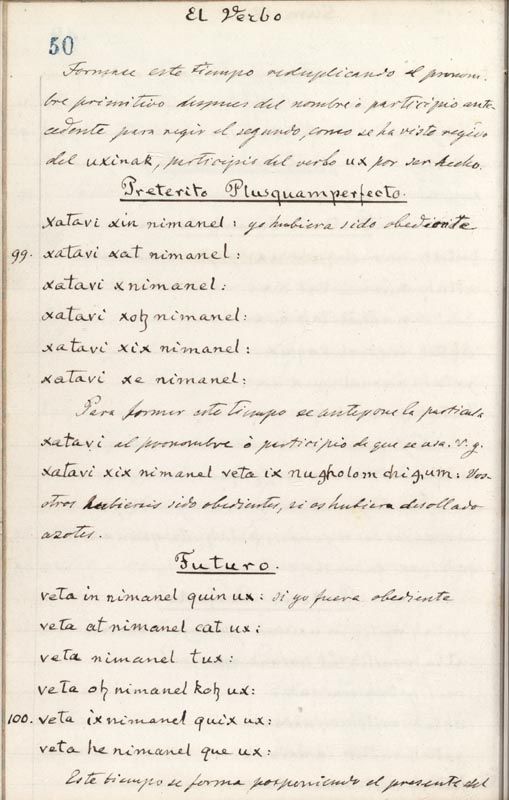 El Verbo
50
Formase este tiempo reduplicando el pronom-
bre primitivo despues del nombre ò participio ante-
cedente para regir el segundo, como se ha visto regido
del uxinak, participio del verbo ux por ser hecho.
Preterito Plusquamperfecto.
xatavi xin nimanel: yo hubiera sido obediente
99. xatavi xat nimanel:
xatavi xnimanel:
xatavi xoꜩ nimanel:
xatavi xix nimanel:
xatavi xe nimanel:
Para formar este tiempo se antepone la particula
xatavi al pronombre ò participio de que se usa. v. g.
xatavi xix nimanel veta ix nugholom chi gum: Vos-
otros hubierais sido obedientes, si os hubiera desollado
azotes.
Futuro.
veta in nimanel quin ux: si yo fuera obediente
veta at nimanel cat ux:
veta nimanel tux:
veta oꜩ nimanel koꜩ ux:
100. veta ix nimanel quix ux:
veta he nimanel que ux:
Este tiempo se forma posponiendo el presente del